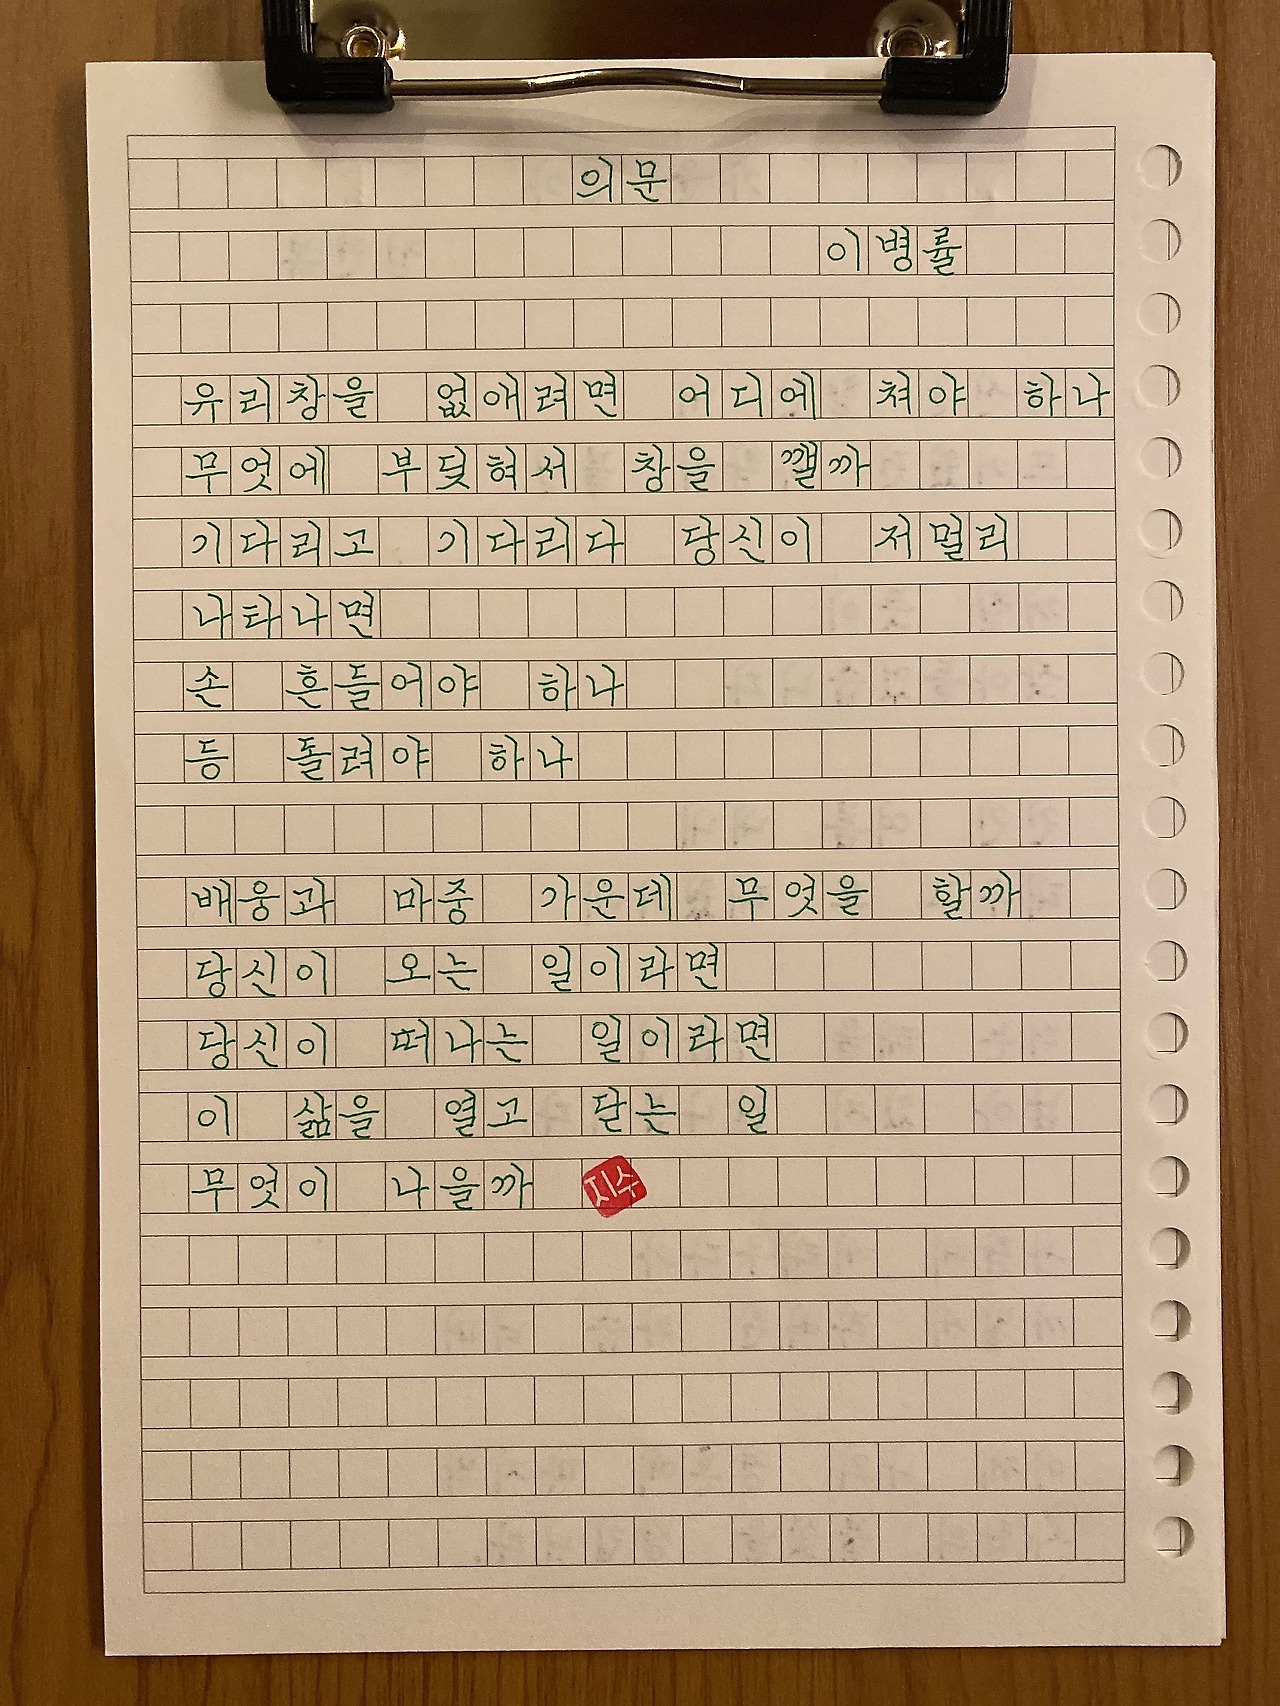 의문
이병률
유리창을 없애려면 어디에 쳐야 하나
무엇에 부딪혀서 창을 깰까
기다리고 기다리다 당신이 저멀리
나타나면
손 흔들어야 하나
등 돌려야 하나
배웅과 마중 가운데 무엇을 할까
당신이 오는 일이라면
당신이 떠나는 일이라면
이 삶을 열고 닫는 일
무엇이 나을까 지수